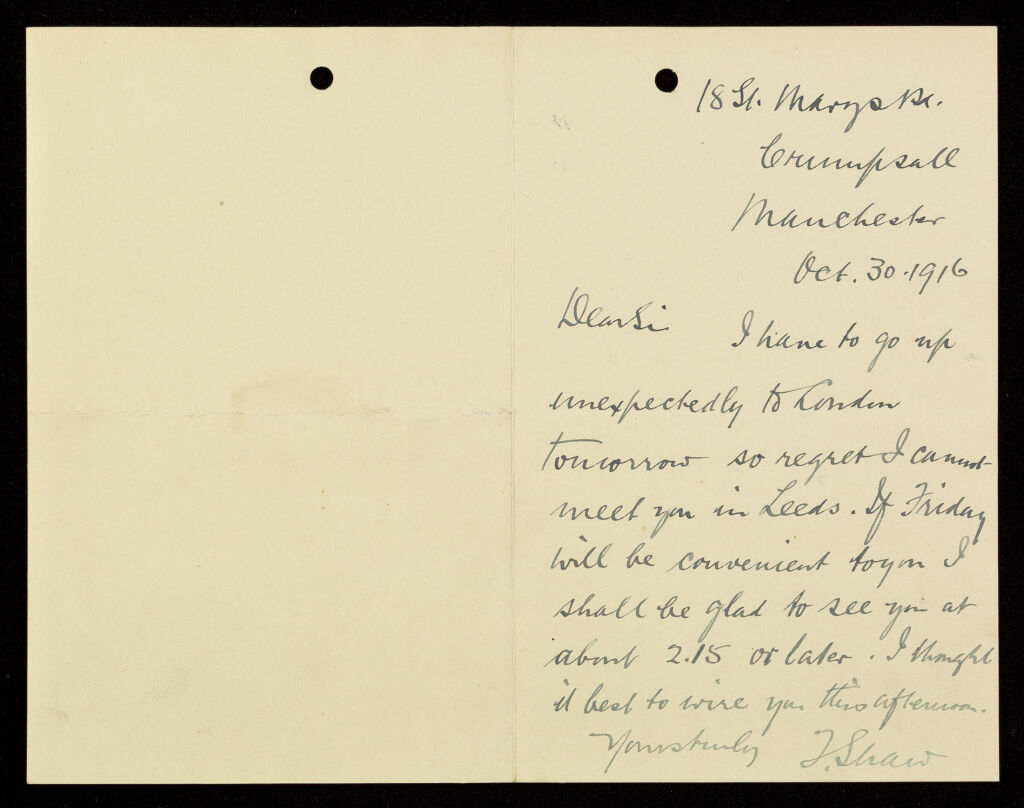 18 St. Marys Rd.
Crumpsall
Manchester
Oct. 30. 1916
Dear Sir
I have to go up
unexpectedly to London
tomorrow so regret I cannot
meet you in Leeds. If Friday
will be convenient to you I
shall be glad to see you at
about 2.15 or later. I thought
it best to wire you this afternoon.
Yours truly
T. Shaw